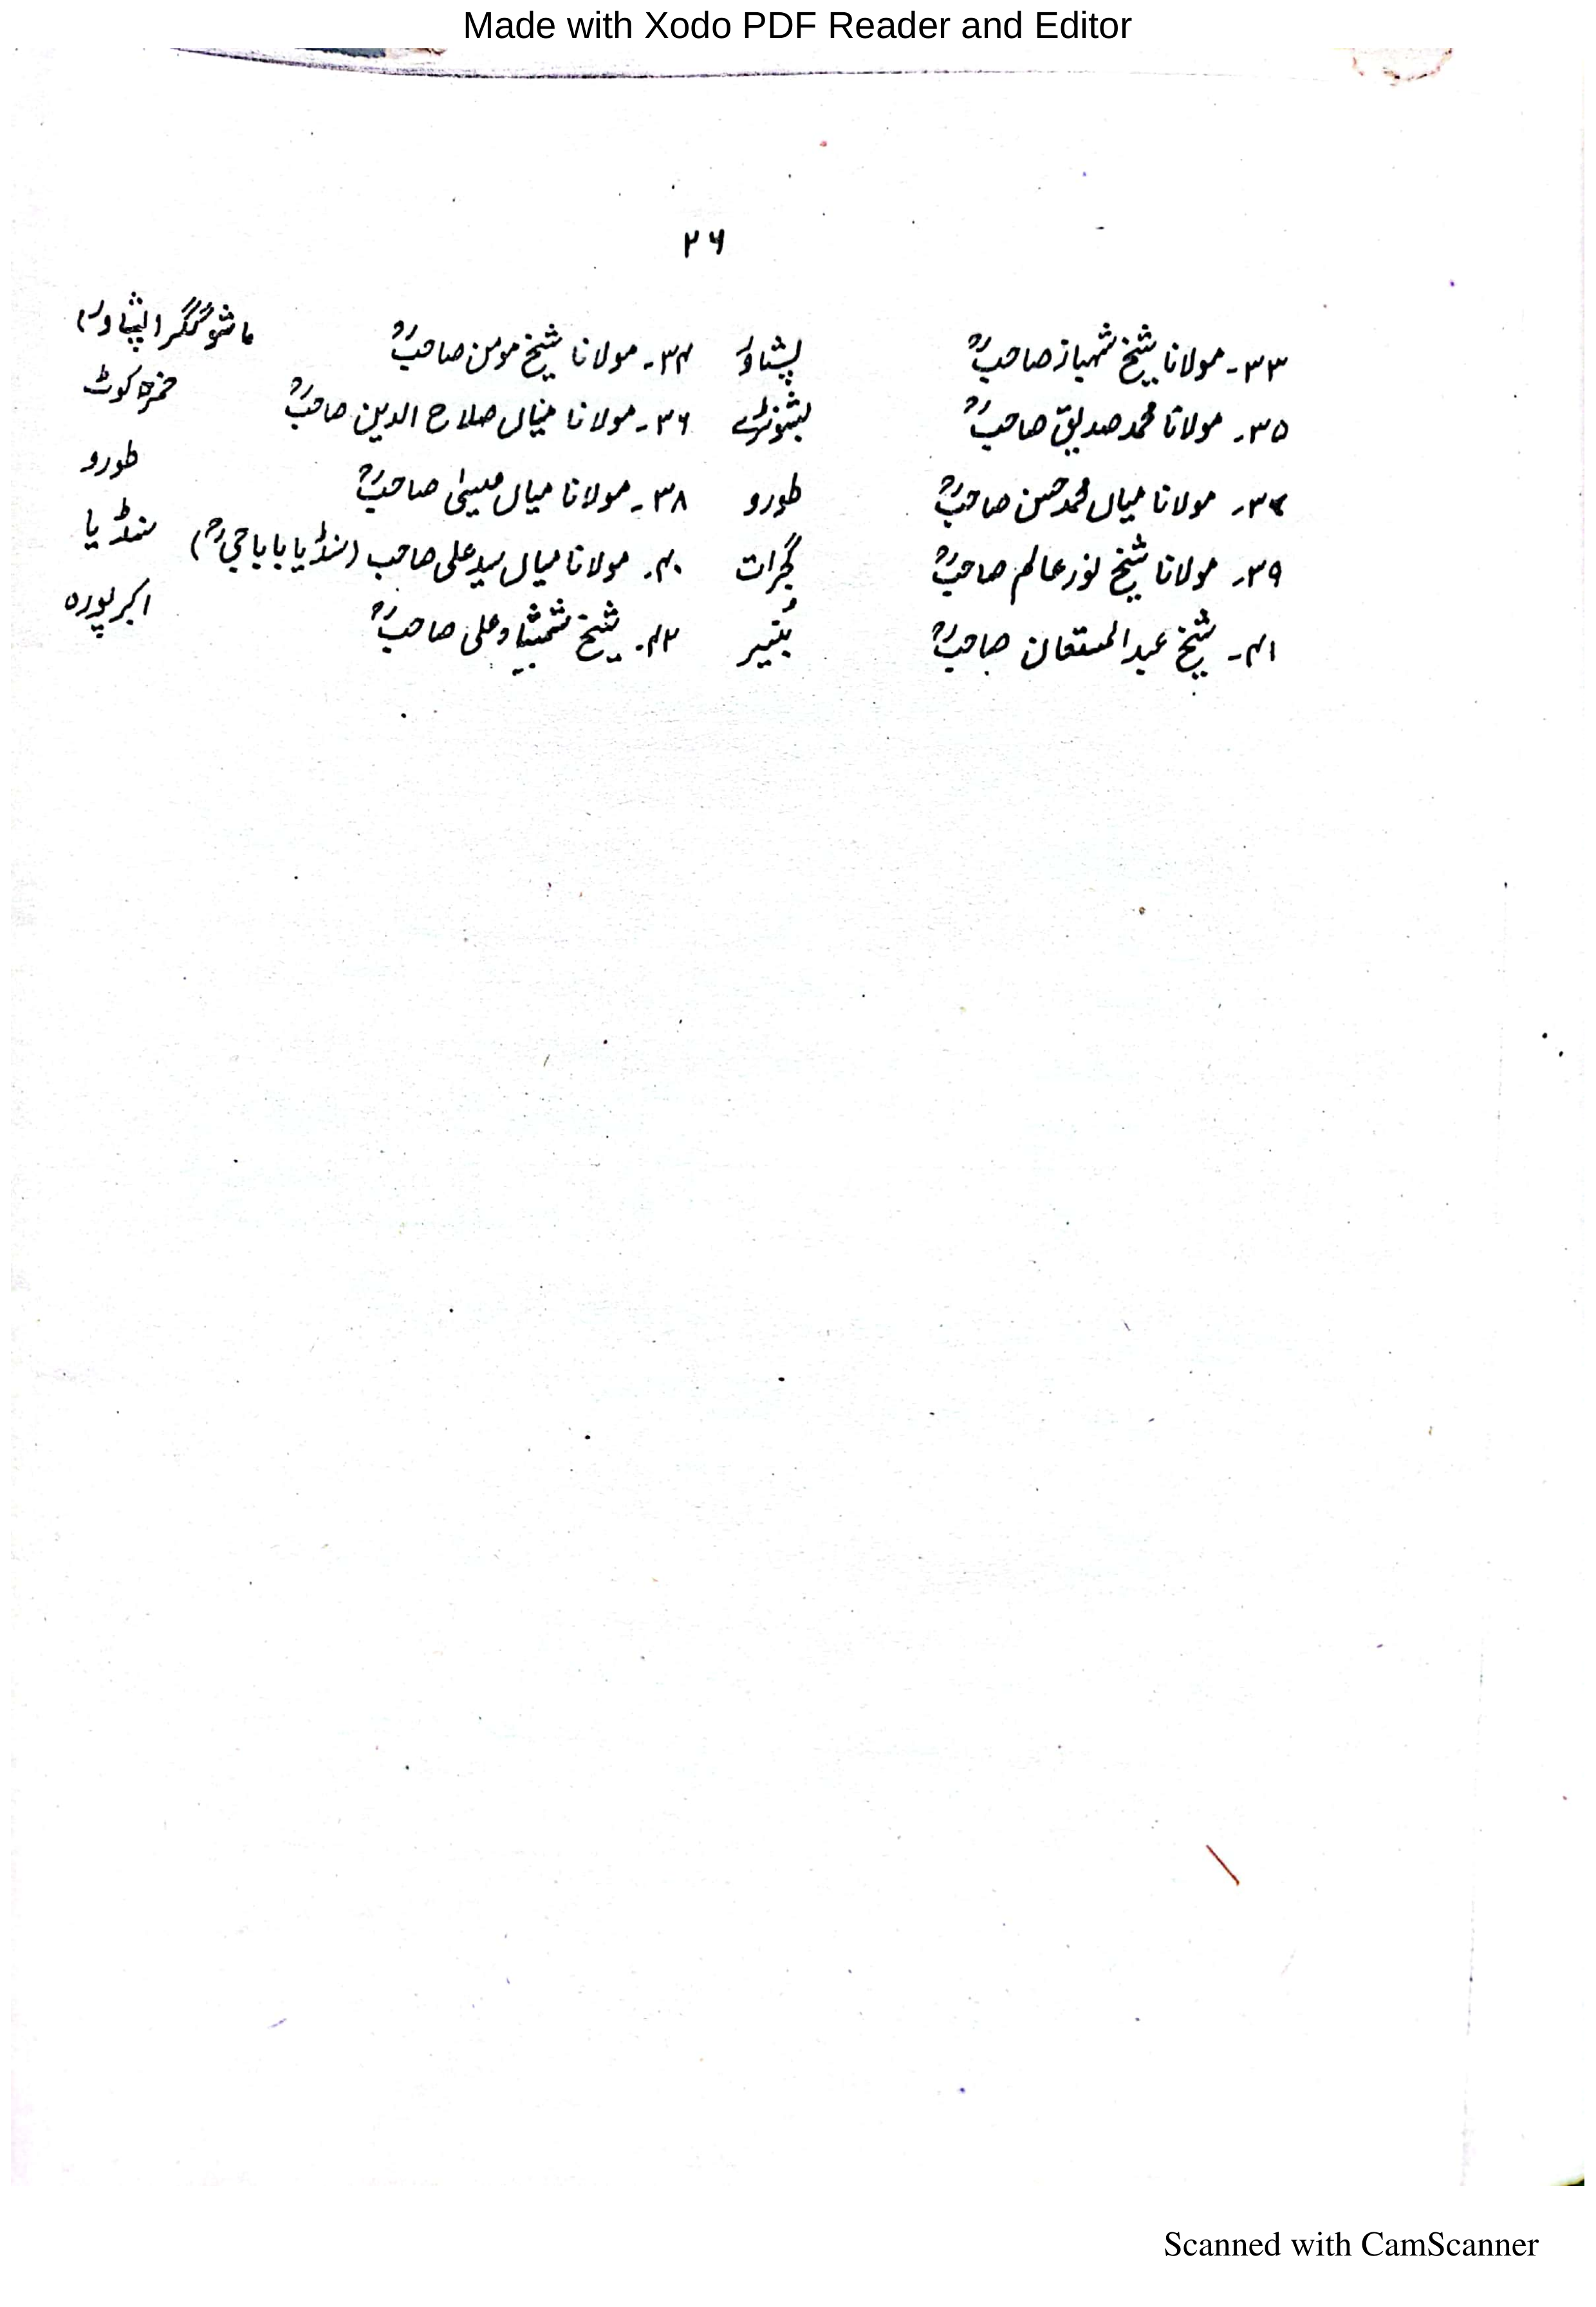 Made with Xodo PDF Reader and Editor
۲۶
۳۳۔ مولانا شیخ شہباز صاحبؒ پشاور ۳۴۔ مولانا شیخ مومن صاحبؒ ماشوگگر (پشاور)
۳۵۔ مولانا محمد صدیق صاحبؒ ۳۶۔ مولانا میاں صلاح الدین صاحبؒ حمزہ کوٹ
۳۷۔ مولانا میاں محمد حسن صاحبؒ طورو ۳۸۔ مولانا میاں عیسیٰ صاحبؒ طورو
۳۹۔ مولانا شیخ نور عالم صاحبؒ گجرات ۴۰۔ مولانا میاں سید علی صاحب (سنڈیا باباجیؒ) سنڈیا
۴۱۔ شیخ عبد المستعان صاحبؒ بُنیر ۴۲۔ شیخ شمشاد علی صاحبؒ اکبرپورہ
Scanned with CamScanner